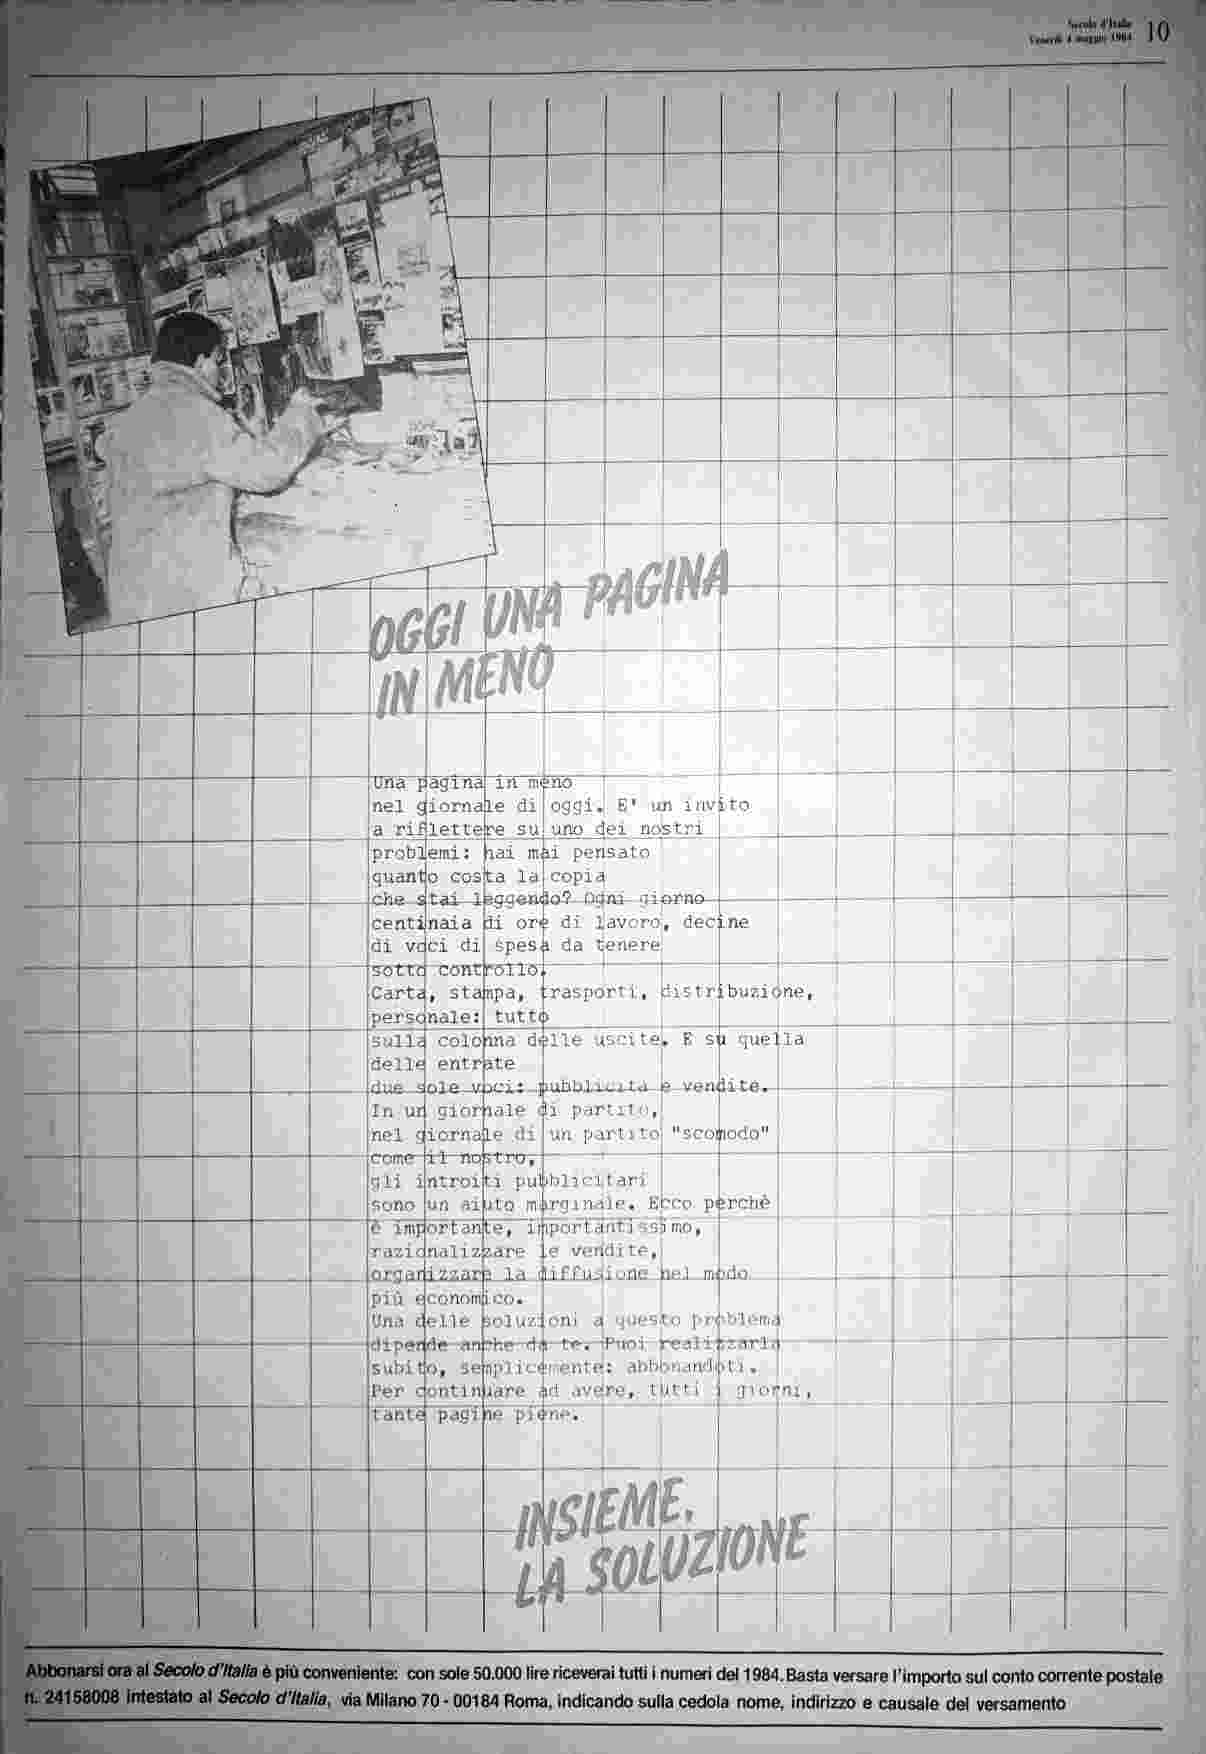 Secolo d'Italia
Venerdì 4 maggio 1984 10
OGGI UNA PAGINA
IN MENO
Una pagina in meno
nel giornale di oggi. E' un invito
a riflettere su uno dei nostri
problemi: hai mai pensato
quanto costa la copia
che stai leggendo? Ogni giorno
centinaia di ore di lavoro, decine
di voci di spesa da tenere
sotto controllo.
Carta, stampa, trasporti, distribuzione,
personale: tutto
sulla colonna delle uscite. E su quella
delle entrate
due sole voci: pubblicità e vendite.
In un giornale di partito,
nel giornale di un partito "scomodo"
come il nostro,
gli introiti pubblicitari
sono un aiuto marginale. Ecco perchè
è importante, importantissimo,
razionalizzare le vendite,
organizzare la diffusione nel modo
più economico.
Una delle soluzioni a questo problema
dipende anche da te. Puoi realizzarla
subito, semplicemente: abbonandoti.
Per continuare ad avere, tutti i giorni,
tante pagine piene.
INSIEME.
LA SOLUZIONE
Abbonarsi ora al Secolo d'Italia è più conveniente: con sole 50.000 lire riceverai tutti i numeri del 1984. Basta versare l'importo sul conto corrente postale
n. 24158008 intestato al Secolo d'Italia, via Milano 70 - 00184 Roma, indicando sulla cedola nome, indirizzo e causale del versamento